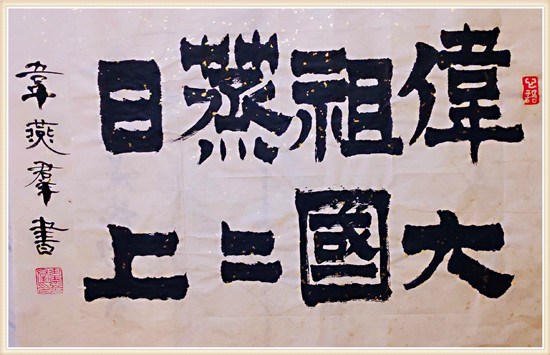 偉大
祖國
蒸〻
日上
韋燕羣書